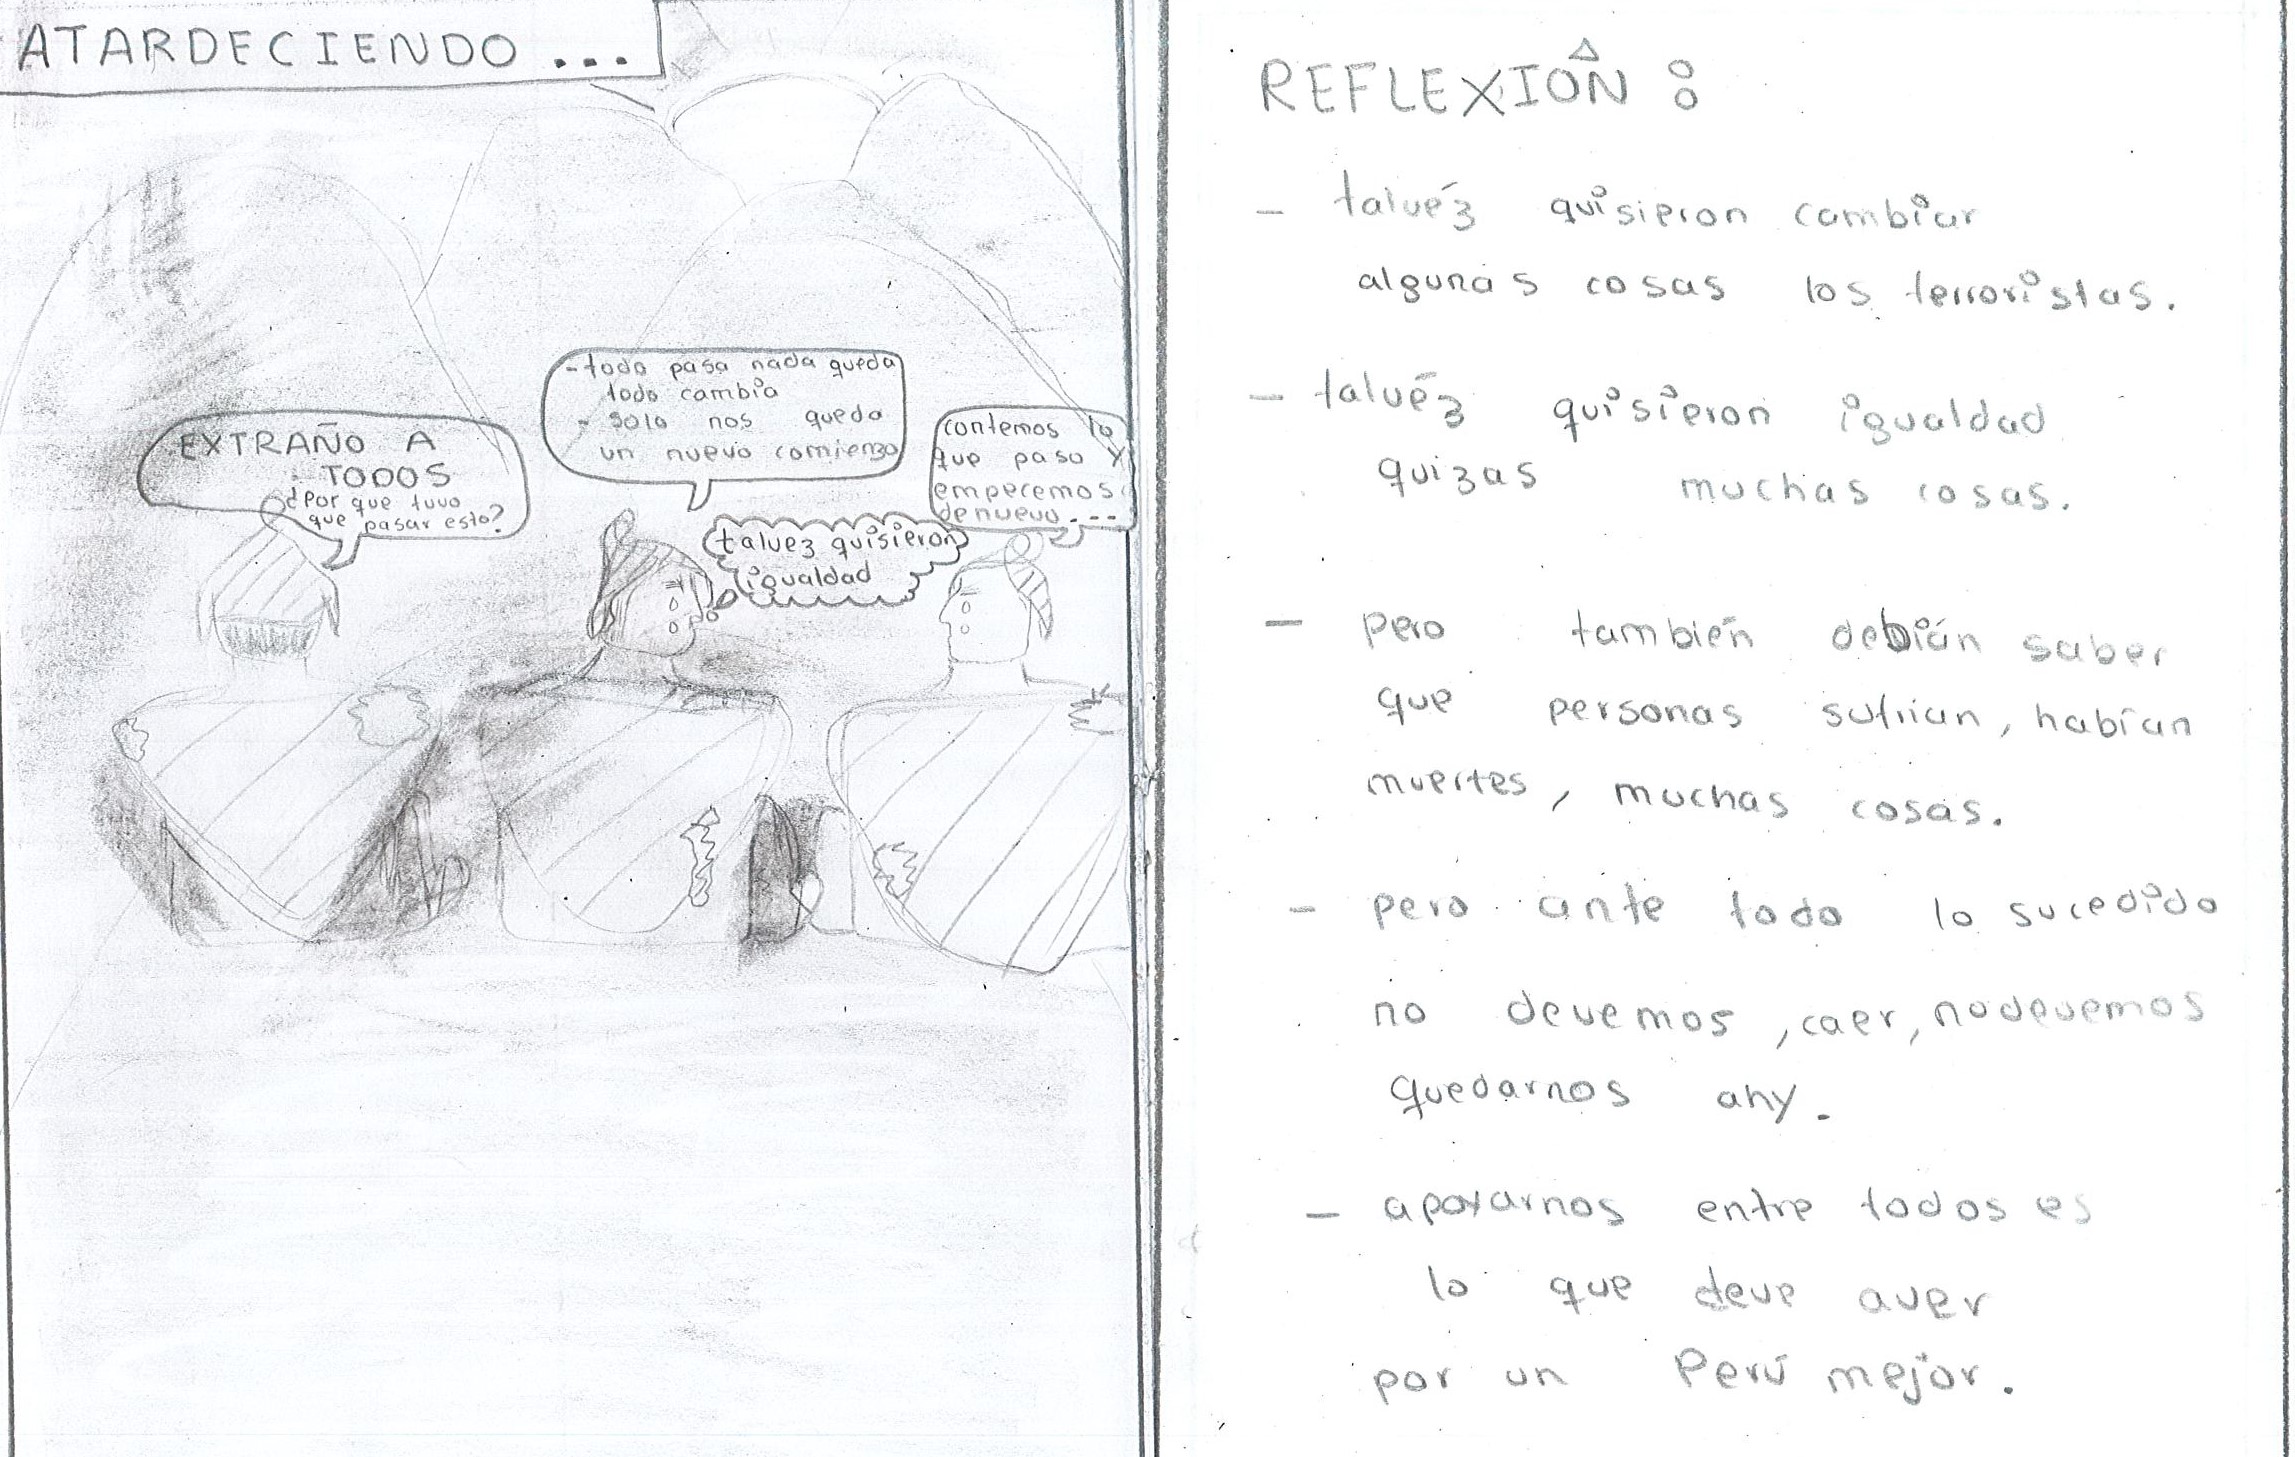 ATARDECIENDO...
EXTRAÑO A
TODOS
¿Por que tuvo
que pasar esto?
- todo pasa nada queda
todo cambia
- solo nos queda
un nuevo comienzo
talvez quisieron
igualdad
contemos lo
que paso y
empecemos
denuevo...
REFLEXIÓN:
- talvéz quisieron cambiar
algunas cosas los terroristas.
- talvéz quisieron igualdad
quizas muchas cosas.
- pero también debián saber
que personas sufrian, habían
muertes, muchas cosas.
- pero ante todo lo sucedido
no devemos, caer, nodevemos
quedarnos ahy.
- apoyarnos entre todos es
lo que deve aver
por un Perú mejor.